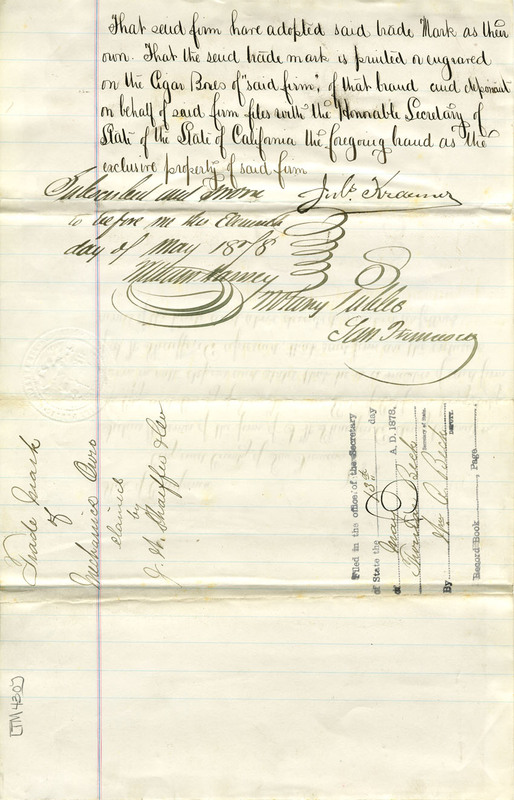 That said firm have adopted said trade Mark as their
own. That the said trade mark is printed or engraved
on the Cigar Boxes of "said firm", of that brand and deponent
on behalf of said firm files with the Honorable Secretary of
State of the State of California the foregoing brand as the
exclusive property of said firm
Subscribed and Sworn
Kraemer
to before me this Eleventh
day of May 1878
William Harney
Notary Public
San Francisco
Trade mark
of
Mechanics Own
claimed
by
J. W. Shaeffer & Co
Filed in the office of the Secretary
of State the 13th day
of May A. D. 1878.
Beck
Secretary of State.
By Wm. Beck
Deputy.
Record Book Page
[TM 430]